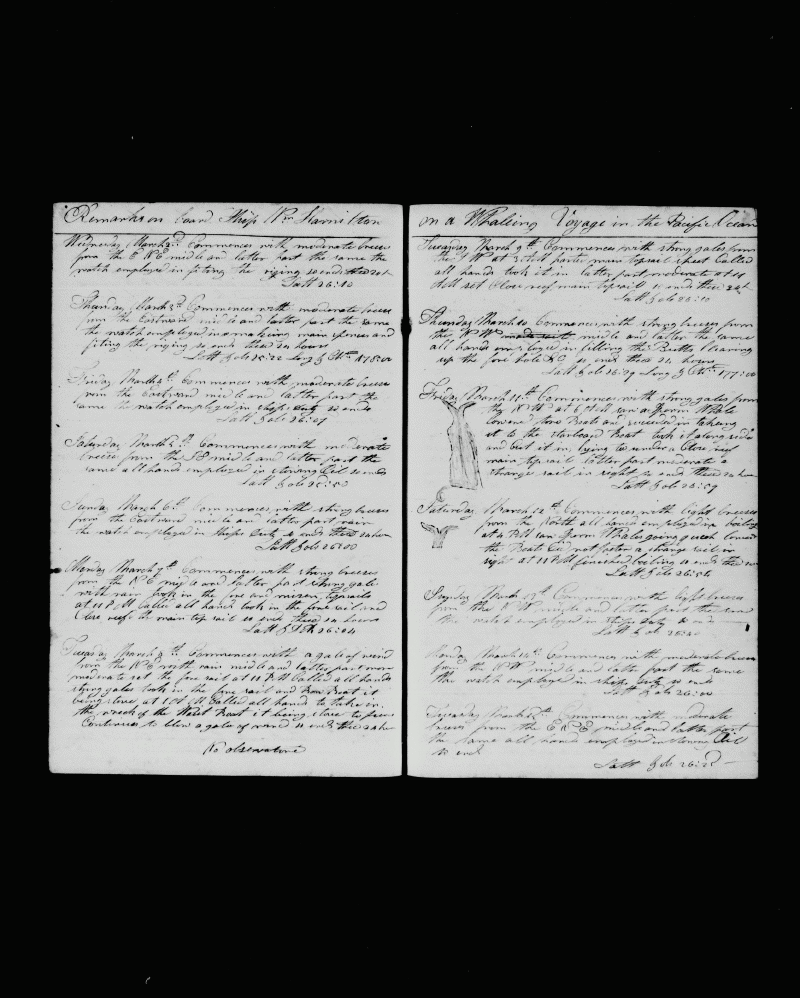 Remarks on board Ship Wm Hamilton
Wednesday March 2d Commences with moderate breeze
from the E N E middle and latter part the same the
watch employed in fiting the riging so ends these 24
Latt 26:40
Thursday March 3d Commences with moderate breezes
from the Eastward middle and latter part the same
the watch employed in making main spencer and
fiting the riging so ends these 24 hours
Latt by obs 25:22 Long by 178:00
Friday March 4th Commences with moderate breezes
from the Eastward middle and latter part the
same the watch employed in ships duty so ends
Latt by obs 26:01
Saturday March 5th Commences with moderate
breeze from the S E middle and latter part the
same all hands employed in stowing Oil so ends
Latt by obs 25:50
Sunday March 6th Commences with strong breezes
from the Eastward middle and latter part rain
the watch employed in Ships Duty so ends these 24 hours
Latt by obs 26:00
Monday March 7th Commences with strong breezes
from the N E middle and latter part strong gale
with rain took in the fore and mizen topsails
at 11 P M Called all hands took in the fore sail and
Close reef the main top sail so ends these 24 hours
Latt by 26:04
Tuesday March 8th Commences with a gale of wind
from the N E with rain middle and latter part more
moderate set the fore sail at 11 P M Called all hands
strong gales took in the fore sail and Bow Boat it
being stove at 1 A M Called all hands to take in
the wreck of the Waist Boat it being stove to pieces
Continues to blow a gale of wind so ends these 24 hours
No observations
on a Whaleing Voyage in the Pacific Ocean
Tuesday March 9th Commences with strong gales from
the N W at 3 A M parted main topsail sheet Called
all hands took it in latter part moderate at 11
A M set Close reef main top sail so ends these 24
Latt by obs 26:10
Thursday March 10 Commences with strong breezes from
the N W middle and latter the same
all hands employed in fitting the Boats breaking
up the fore hole &C so ends these 24 hours
Latt by obs 26:29 Long by 177:00
Friday March 11th Commences with strong gales from
the N W at 6 A M saw a Sperm Whale
lowered two Boats and succeeded in taking
it to the starboard Boat took it along side
and Cut it in, lying to under a Close reef
main top sail latter part moderate a
strange sail in sight so ends these 24 hours
Latt by obs 26:59
Saturday March 12th Commences with light breezes
from the North all hands employed in boiling
at 4 P M saw Sperm Whales going quick lowered
the Boats Did not fasten a strange sail in
sight at 11 P M finished boiling so ends these 24
Latt by obs 26:56
Sunday March 13th Commences with light breezes
from the N W middle and latter part the same
the watch employed in ships duty so ends
Latt by ob 26:40
Monday March 14th Commences with moderate breezes
from the N W middle and latter part the same
the watch employed in ships duty so ends
Latt by obs 26:00
Tuesday March 15th Commences with moderate
breezes from the E N E middle and latter part
the same all hands employed in stowing Oil
so ends
Latt by obs 26:25